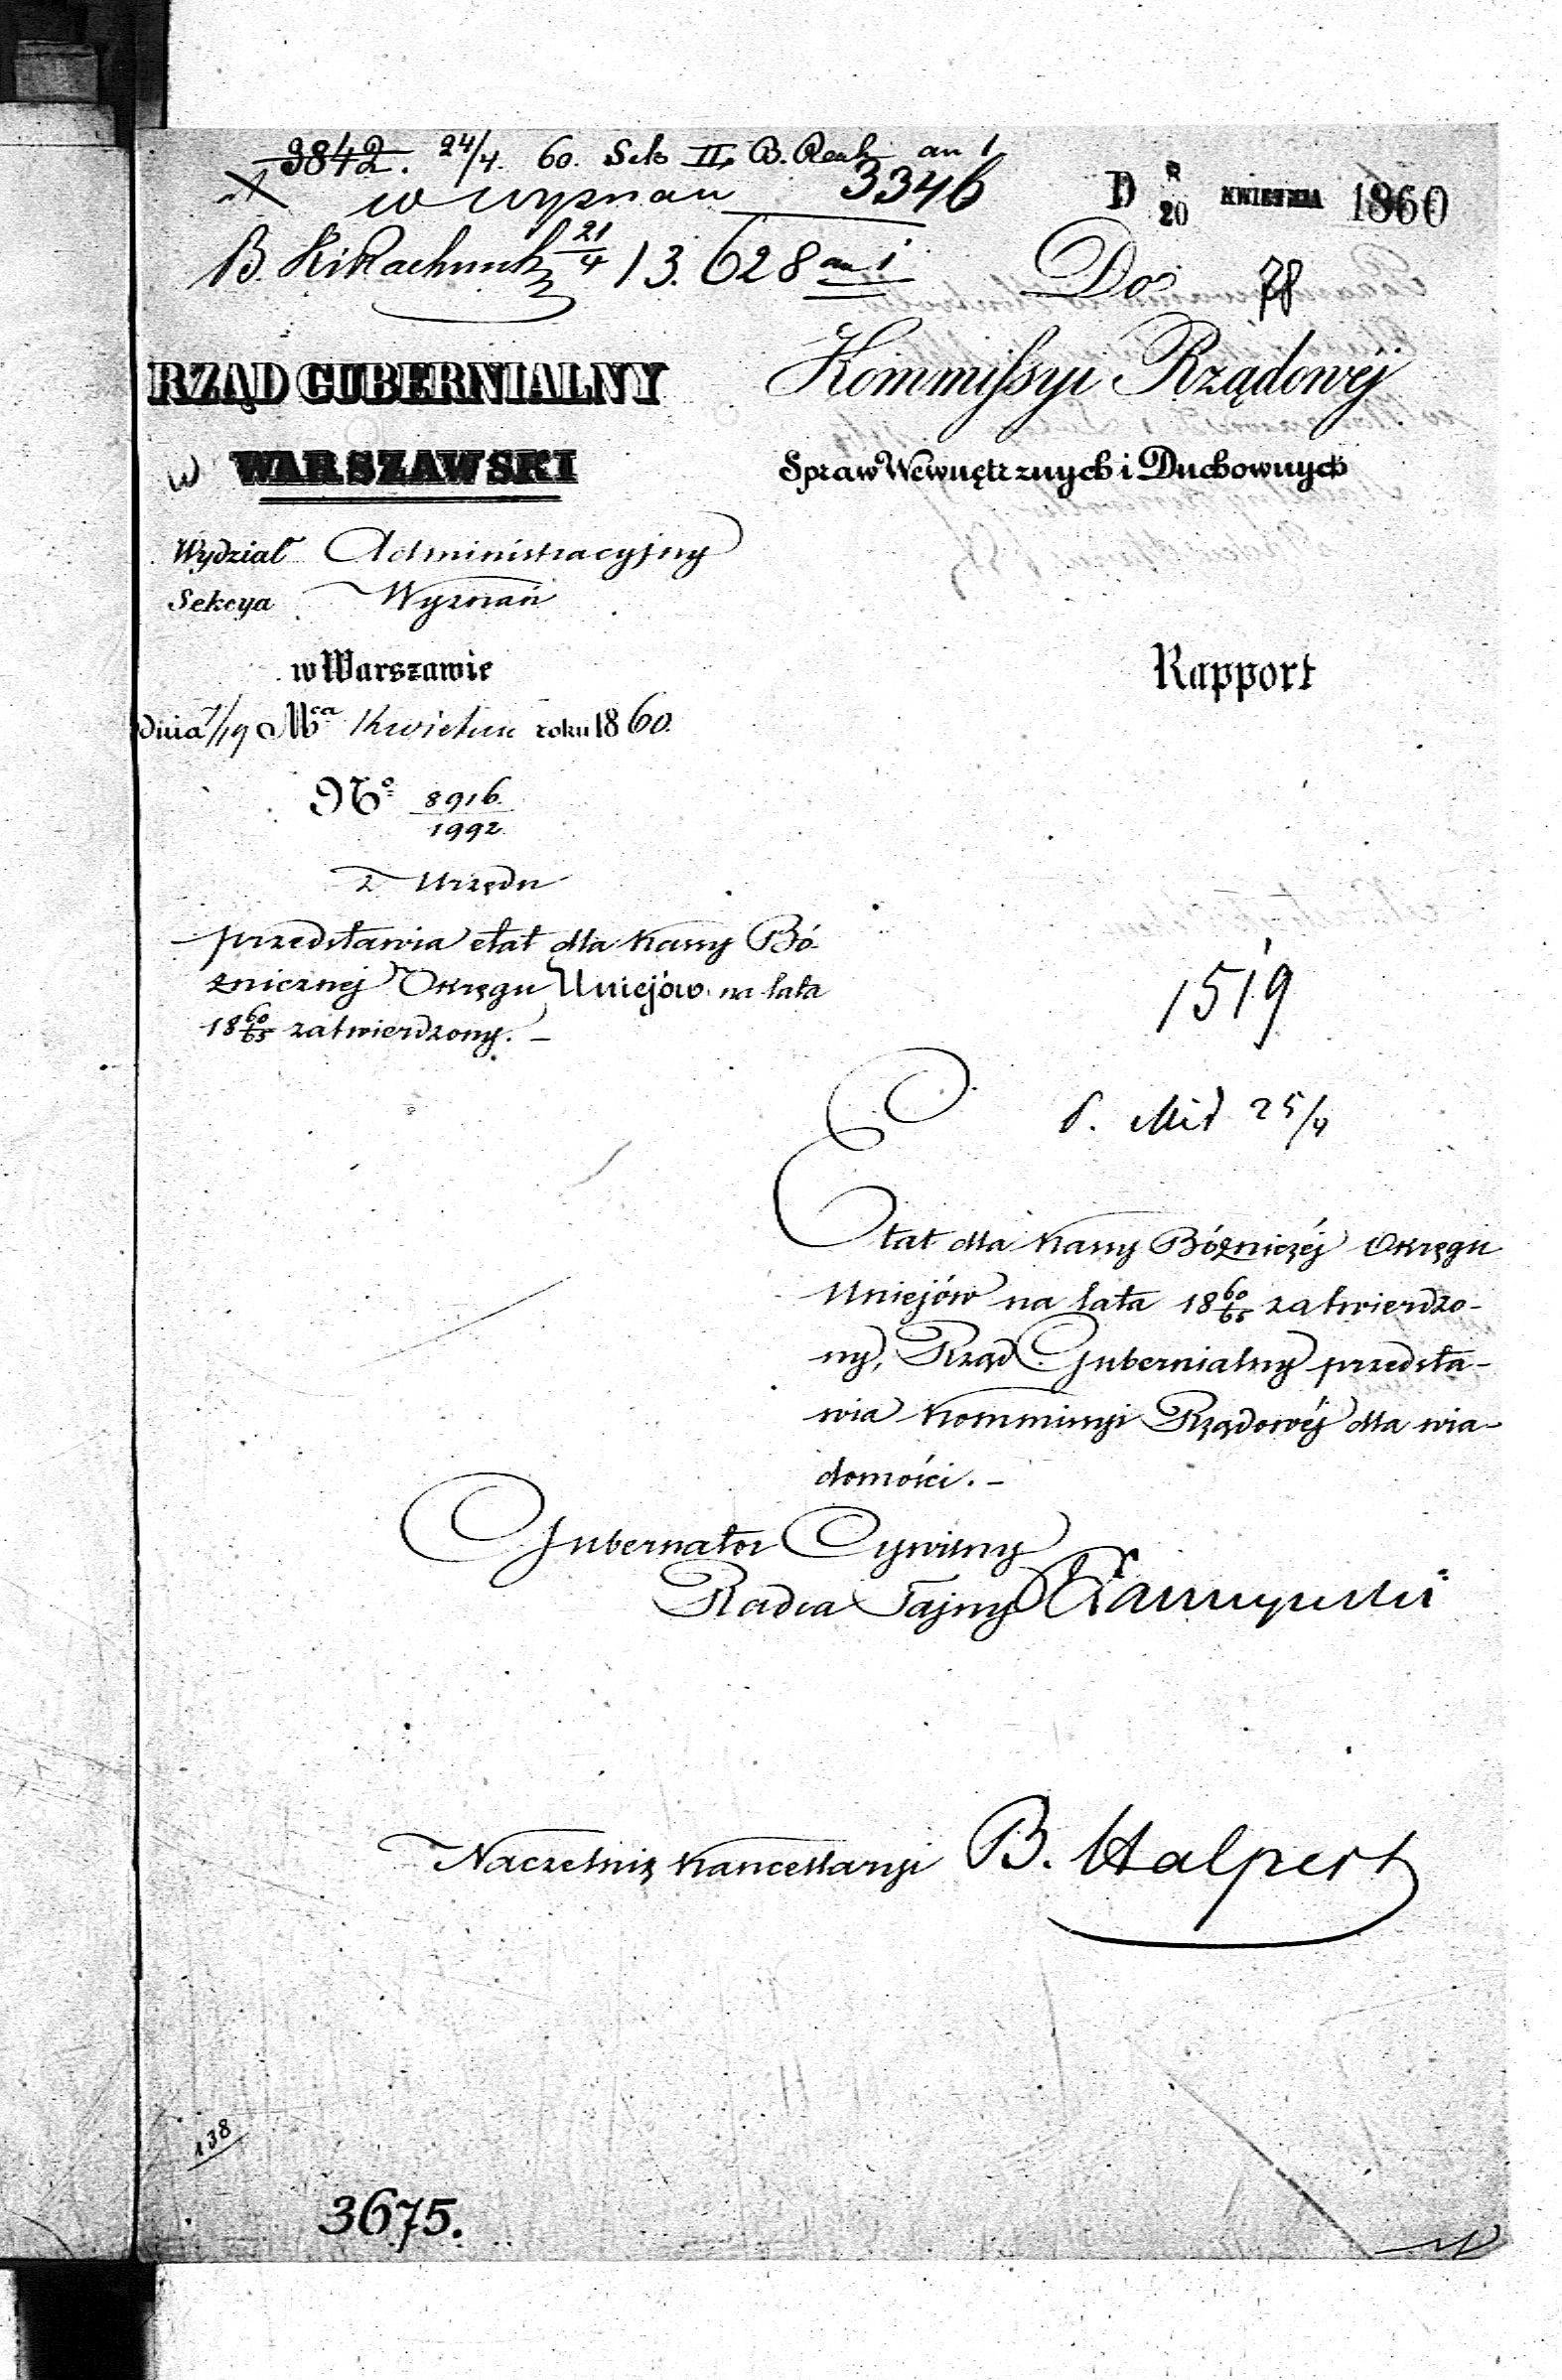 3842. 24/4. 60. Sek II, B. Rach an 1
w wyznan 3346
D 8/20 KWIETNIA 1860
B. Rachunk 21/4 13.628 an 1
Do 78
RZĄD GUBERNIALNY
WARSZAWSKI
Kommissyi Rządowéj
Spraw Wewnętrznych i Duchownych
Wydział Administracyjny
Sekcya Wyznań
w Warszawie
dnia 7/19 Mca Kwietnia roku 1860.
Rapport
No 8916/1992
z Urzędu
przedstawia etat dla kassy Bó-
żnicznej Okręgu Uniejów na lata
18 60/65 zatwierdzony. –
1519
25/4
Etat dla kassy Bóżniczéj Okręgu
Uniejów na lata 18 60/65 zatwierdzo-
ny, Rząd Gubernialny przedsta-
wia Kommissyi Rządowéj dla wia-
domości. –
Gubernator Cywilny
Radca Tajny
Naczelnik Kancellaryi B. Halpert
138
3675.